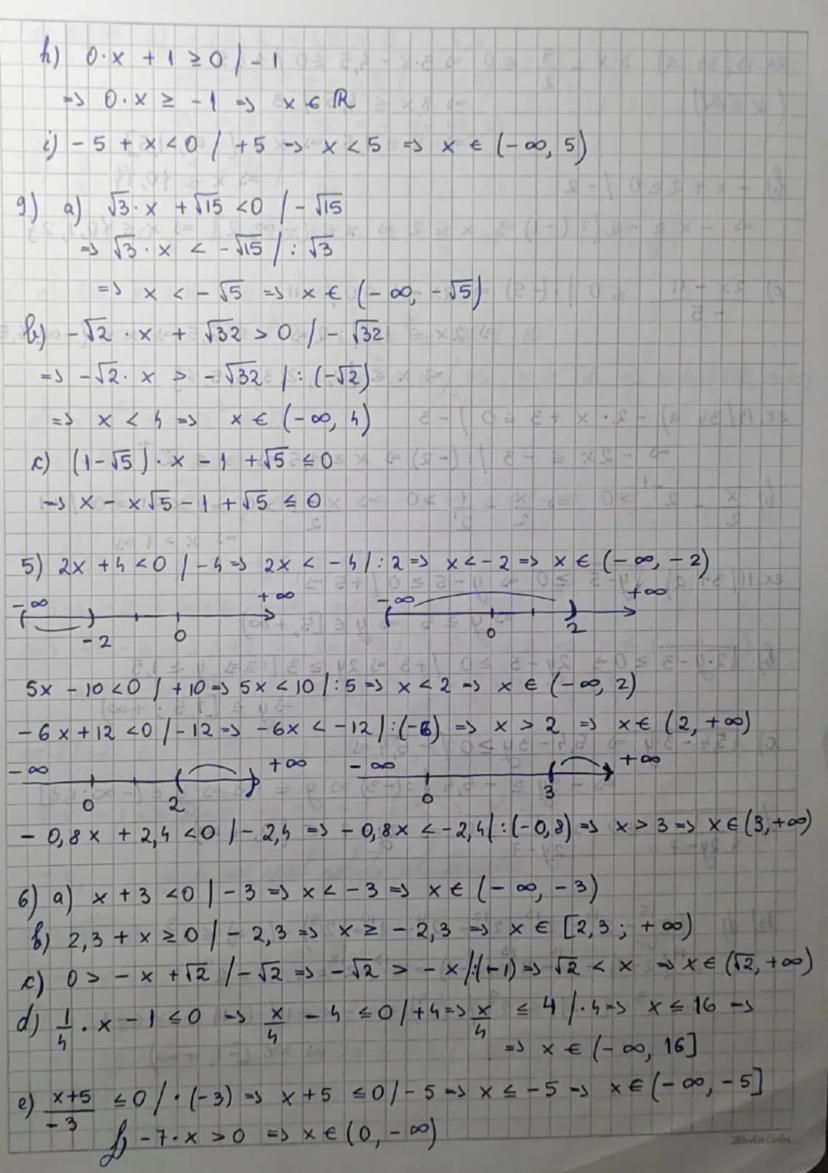 h) 0·x + 1 ≥ 0 / -1
=> 0·x ≥ -1 => x ∈ ℝ
i) -5 + x < 0 / +5 => x < 5 => x ∈ (-∞, 5)
9) a) √3·x + √15 < 0 / -√15
=> √3·x < -√15 / : √3
=> x < -√5 => x ∈ (-∞, -√5)
b) -√2·x + √32 > 0 / -√32
=> -√2·x > -√32 / : (-√2)
=> x < 4 => x ∈ (-∞, 4)
c) (1-√5)·x - 1 + √5 ≤ 0
=> x - x√5 - 1 + √5 ≤ 0
5) 2x + 4 < 0 / -4 => 2x < -4 / : 2 => x < -2 => x ∈ (-∞, -2)
-∞ +∞ -∞ +∞
-2 0 0 2
5x - 10 < 0 / +10 => 5x < 10 / : 5 => x < 2 => x ∈ (-∞, 2)
-6x + 12 < 0 / -12 => -6x < -12 / : (-6) => x > 2 => x ∈ (2, +∞)
-∞ +∞ -∞ +∞
0 2 0 3
-0,8x + 2,4 < 0 / -2,4 => -0,8x < -2,4 / : (-0,8) => x > 3 => x ∈ (3, +∞)
6) a) x + 3 < 0 / -3 => x < -3 => x ∈ (-∞, -3)
b) 2,3 + x ≥ 0 / -2,3 => x ≥ -2,3 => x ∈ [2,3 ; +∞)
c) 0 > -x + √2 / -√2 => -√2 > -x / : (-1) => √2 < x => x ∈ (√2, +∞)
d) 1/4 · x - 1 ≤ 0 => x/4 - 4 ≤ 0 / +4 => x/4 ≤ 4 / ·4 => x ≤ 16 =>
=> x ∈ (-∞, 16]
e) x+5/-3 ≤ 0 / ·(-3) => x + 5 ≤ 0 / -5 => x ≤ -5 => x ∈ (-∞, -5]
f) -7·x > 0 => x ∈ (0, -∞)